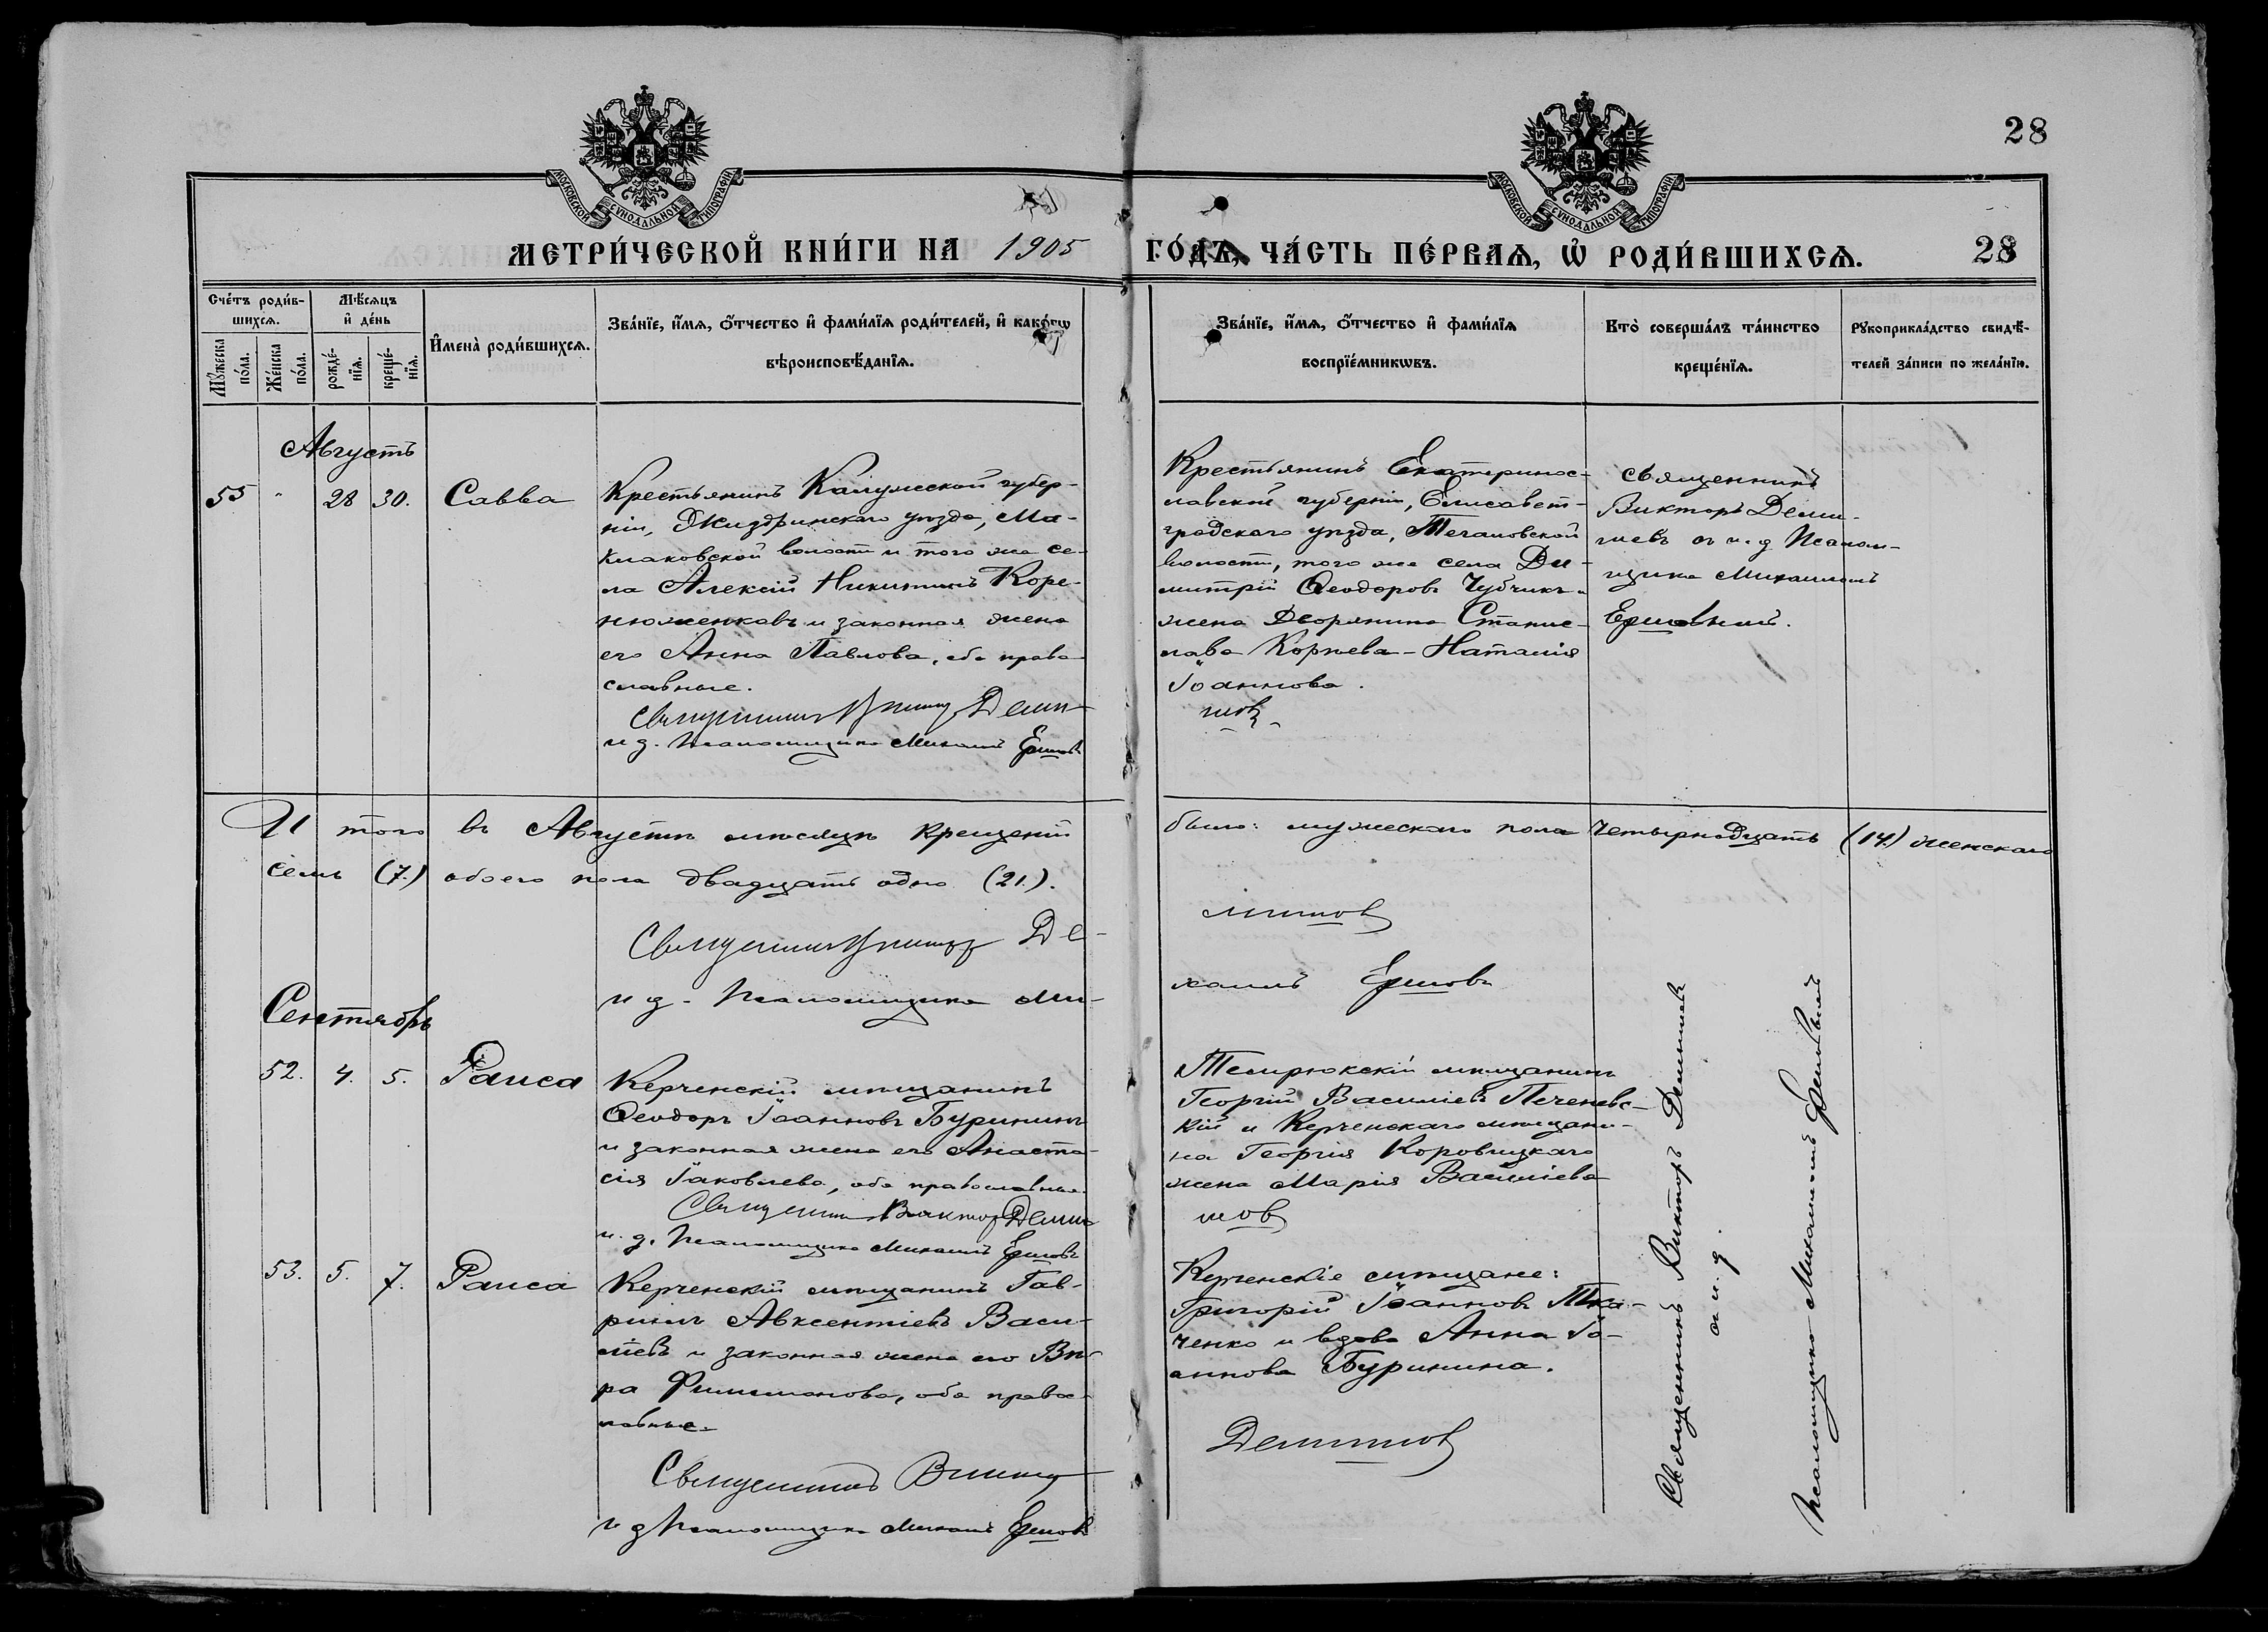 28
МОСКОВСКОЙ СѴНОДАЛЬНОЙ ТИПОГРАФІИ
МОСКОВСКОЙ СѴНОДАЛЬНОЙ ТИПОГРАФІИ
МЕТРИ́ЧЕСКОЙ КНИ́ГИ НА 1905 ГО́ДЪ, ЧА́СТЬ ПЕ́РВАѦ, Ѡ҆ РОДИ́ВШИХСѦ. 28
Сче́тъ роди́в-
шихсѧ.
Мꙋ́жеска по́ла.
Же́нска по́ла.
Мѣ́сѧцъ
и҆ де́нь
рожде́-
нїѧ.
креще́-
нїѧ.
И҆мена̀ роди́вшихсѧ.
Зва́нїе, и҆́мѧ, ѻ҆́тчество и҆ фами́лїѧ роди́телей, и҆ како́гѡ
вѣроисповѣ́данїѧ.
Зва́нїе, и҆́мѧ, ѻ҆́тчество и҆ фами́лїѧ
воспрїе́мникѡвъ.
Кто̀ соверша́лъ та́инство
креще́нїѧ.
Рꙋкоприкла́дство свидѣ́-
телей за́писи по жела́нїю.
Августъ
55 " 28 30. Савва
Крестьянинъ Калужской губер-
ніи, Жиздринскаго уѣзда, Ма-
клаковской волости и того же се-
ла Алексій Никитинъ Коре-
нюженковъ и законная жена
его Анна Павлова, оба право
славные.
Священникъ Викторъ Деми-
и д. Псаломщика Михаилъ Ершовъ
Крестьянинъ Екатеринос-
лавской губерніи, Елисавет-
градскаго уѣзда,
волости, того же села Ди-
митрій Ѳеодоровъ Чубчикъ и
жена Дворянина Станис-
лава Корнева - Наталія
Іоаннова.
шовъ
священникъ
Викторъ Деми-
шевъ съ и. д Псалом-
щика Михаиломъ
Ершовымъ.
И того въ Августѣ мѣсяцѣ крещеній было: мужескаго пола четырнадцать (14.) женскаго
семь (7.) обоего пола двадцать одно (21.).
Священникъ Викторъ Де-
мишовъ
и д. Псаломщика Ми-
хаилъ Ершовъ
Сентябрь
52. 4. 5. Раиса
Керченскій мѣщанинъ
Ѳеодоръ Іоанновъ Буринин
и законная жена его Анаста-
сія Іаковлева, оба православные.
Священникъ Викторъ Деми
и. д. Псаломщика Михаилъ Ершовъ
Темрюкскій мѣщанинъ
Георгій Василіевъ Печеневс-
кій и Керченскаго мѣщани-
на Георгія Коровицкаго
жена Марія Василіева
шовъ
53. 5. 7. Раиса
Керченскій мѣщанинъ Гав-
ріилъ Авксентіевъ Васи-
ліевъ и законная жена его Вѣ-
ра Филимонова, оба правос-
лавные.
Священникъ Викторъ
и д Псаломщика Михаилъ Ершовъ
Керченскіе мѣщане:
Григорій Іоанновъ Тка-
ченко и вдова Анна Іо-
аннова Буринина.
Демишовъ
Священникъ Викторъ Демишевъ
съ и. д.
Псаломщика Михаиломъ Ершовымъ